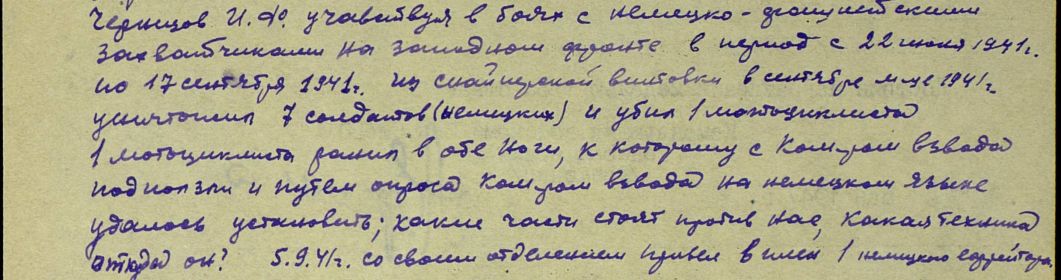 Чернцов И.Ф. участвуя в боях с немецко-фашистскими
захватчиками на западном фронте в период с 22 июня 1941г.
по 17 сентября 1941г. из снайперской винтовки в сентябре м-це 1941г.
уничтожил 7 солдатов (немецких) и убил 1 мотоциклиста
1 мотоциклиста ранил в обе ноги, к которому с Ком-ром взвода
подползли и путем опроса Ком-ром взвода на немецком языке
удалось установить; какие части стоят против нас, какая техника
откуда он? 5.9.41г. со своим отделением привел в плен 1 немецкого ефрейтора